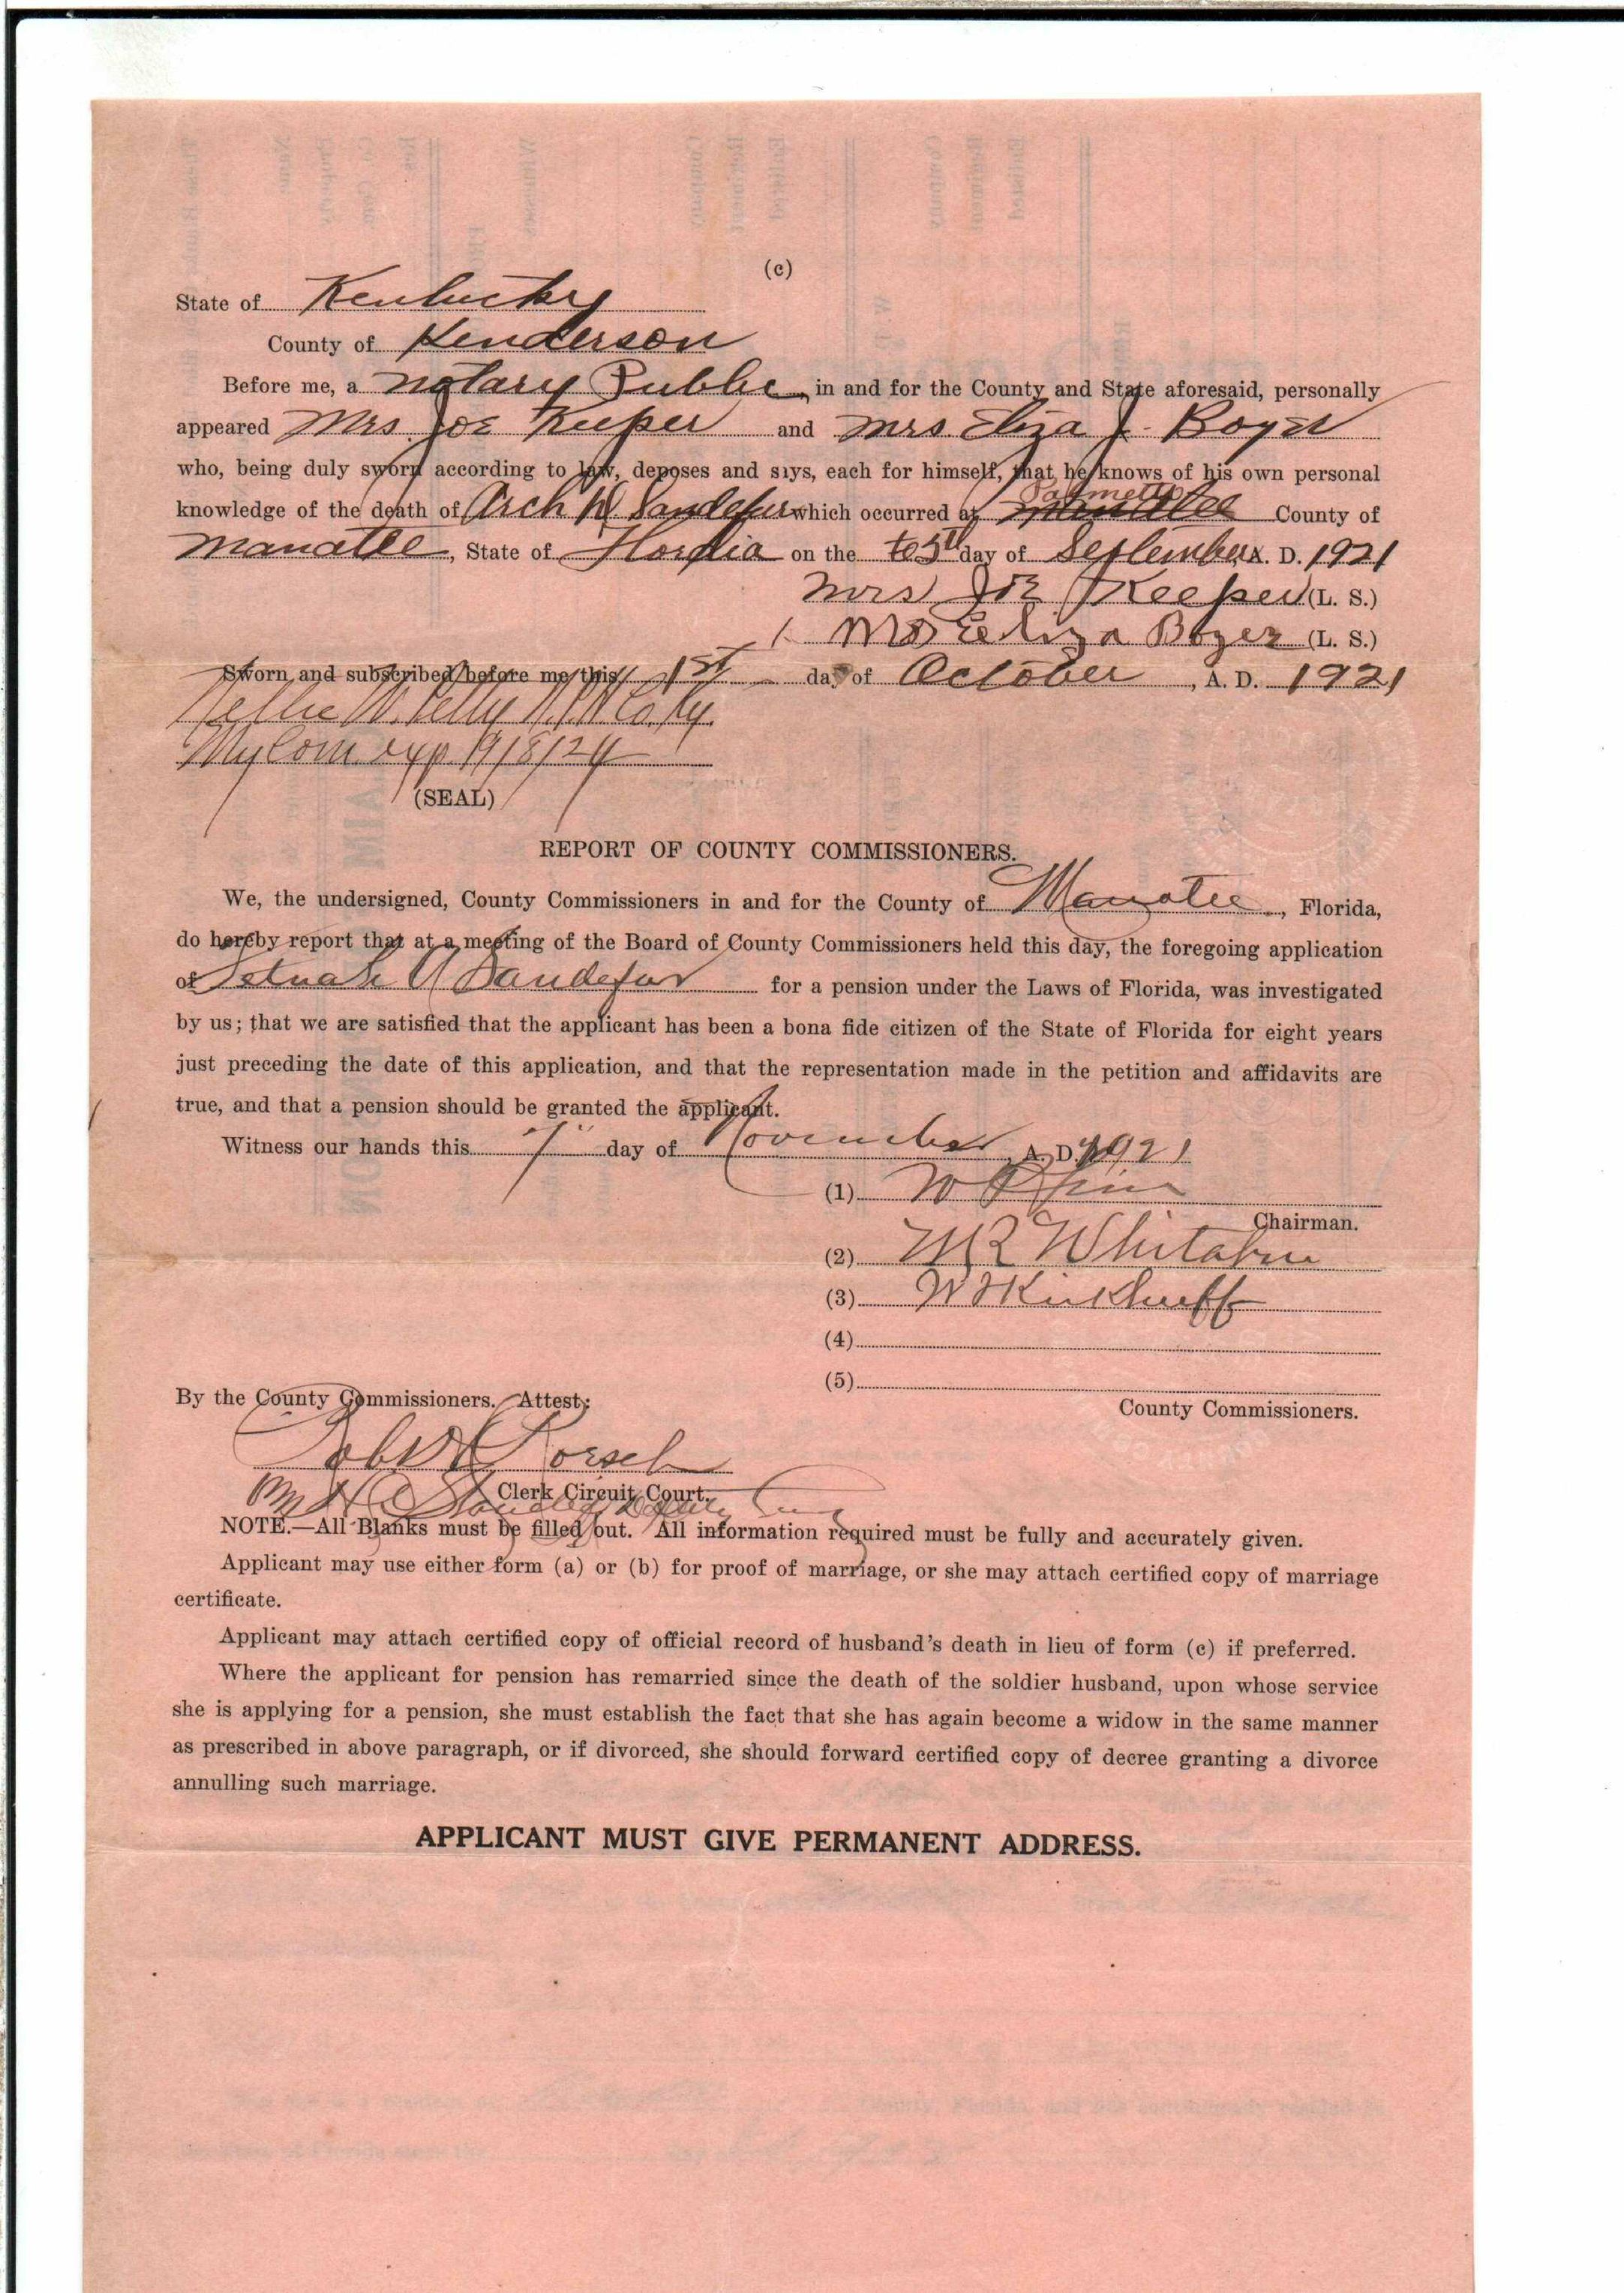 (c)
State of Kentucky
County of Henderson
Before me, a notary Public, in and for the County and State aforesaid, personally
appeared Mrs. Joe Keeper and Mrs. Eliza J. Boyer
who, being duly sworn according to law, deposes and says, each for himself, that he knows of his own personal
knowledge of the death of Arch W Sandefur which occurred at Palmetto County of
Manatee, State of Flordia on the 5th day of September A. D. 1921
Mrs Joe Keeper (L. S.)
Mrs Eliza Boyer (L. S.)
Sworn and subscribed before me this 1st day of October, A. D. 1921
Nellie W. Kelly N.P.H.Co.Ky.
My Com. exp. 1/8/24
(SEAL)
REPORT OF COUNTY COMMISSIONERS.
We, the undersigned, County Commissioners in and for the County of Manatee, Florida,
do hereby report that at a meeting of the Board of County Commissioners held this day, the foregoing application
of Setuah A Sandefur for a pension under the Laws of Florida, was investigated
by us; that we are satisfied that the applicant has been a bona fide citizen of the State of Florida for eight years
just preceding the date of this application, and that the representation made in the petition and affidavits are
true, and that a pension should be granted the applicant.
Witness our hands this 7" day of November, A. D. 1921
(1) W
Chairman.
(2) M R Whitaker
(3) W Kirkhuff
(4)
(5)
By the County Commissioners. Attest:
County Commissioners.
Robt H Roesch
Clerk Circuit Court.
By H C Deputy
NOTE.—All Blanks must be filled out. All information required must be fully and accurately given.
Applicant may use either form (a) or (b) for proof of marriage, or she may attach certified copy of marriage
certificate.
Applicant may attach certified copy of official record of husband's death in lieu of form (c) if preferred.
Where the applicant for pension has remarried since the death of the soldier husband, upon whose service
she is applying for a pension, she must establish the fact that she has again become a widow in the same manner
as prescribed in above paragraph, or if divorced, she should forward certified copy of decree granting a divorce
annulling such marriage.
APPLICANT MUST GIVE PERMANENT ADDRESS.